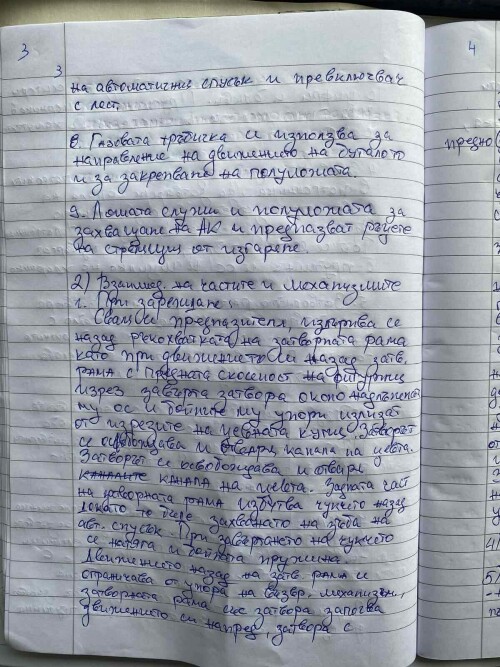 3
3
на автоматичния спусък и превключвач
с лост.
8. Газовата тръбичка се използва за
направление на движението на буталото
и за закрепване на полуложата.
9. Ложата служи и полуложата за
захващане на АК и предпазват ръцете
на стрелящия от изгаряне.
2) Взаимод. на частите и механизмите
1. При зареждане:
Сваля се предпазителя, издърпва се
назад ръкохватката на затворната рама
като при движението си назад затв.
рама с предната скосеност на фигурния
изрез завърта затвора около надлъжната
му ос и бойните му упори излизат
от изрезите на цевната кутия. Затворът
се освобождава и отваря канала на цевта.
Затворът се освобождава и отваря
канала на цевта. Задната част
на затворната рама избутва чукчето назад
докато не бъде захванато на зъба на
авт. спусък. При завъртането на чукчето
се навива и бойната пружина.
Движението назад на затв рама се
ограничава от упора на възвр. механизъм,
затворната рама със затвора започва
движението си напред, затвора с
4
предно